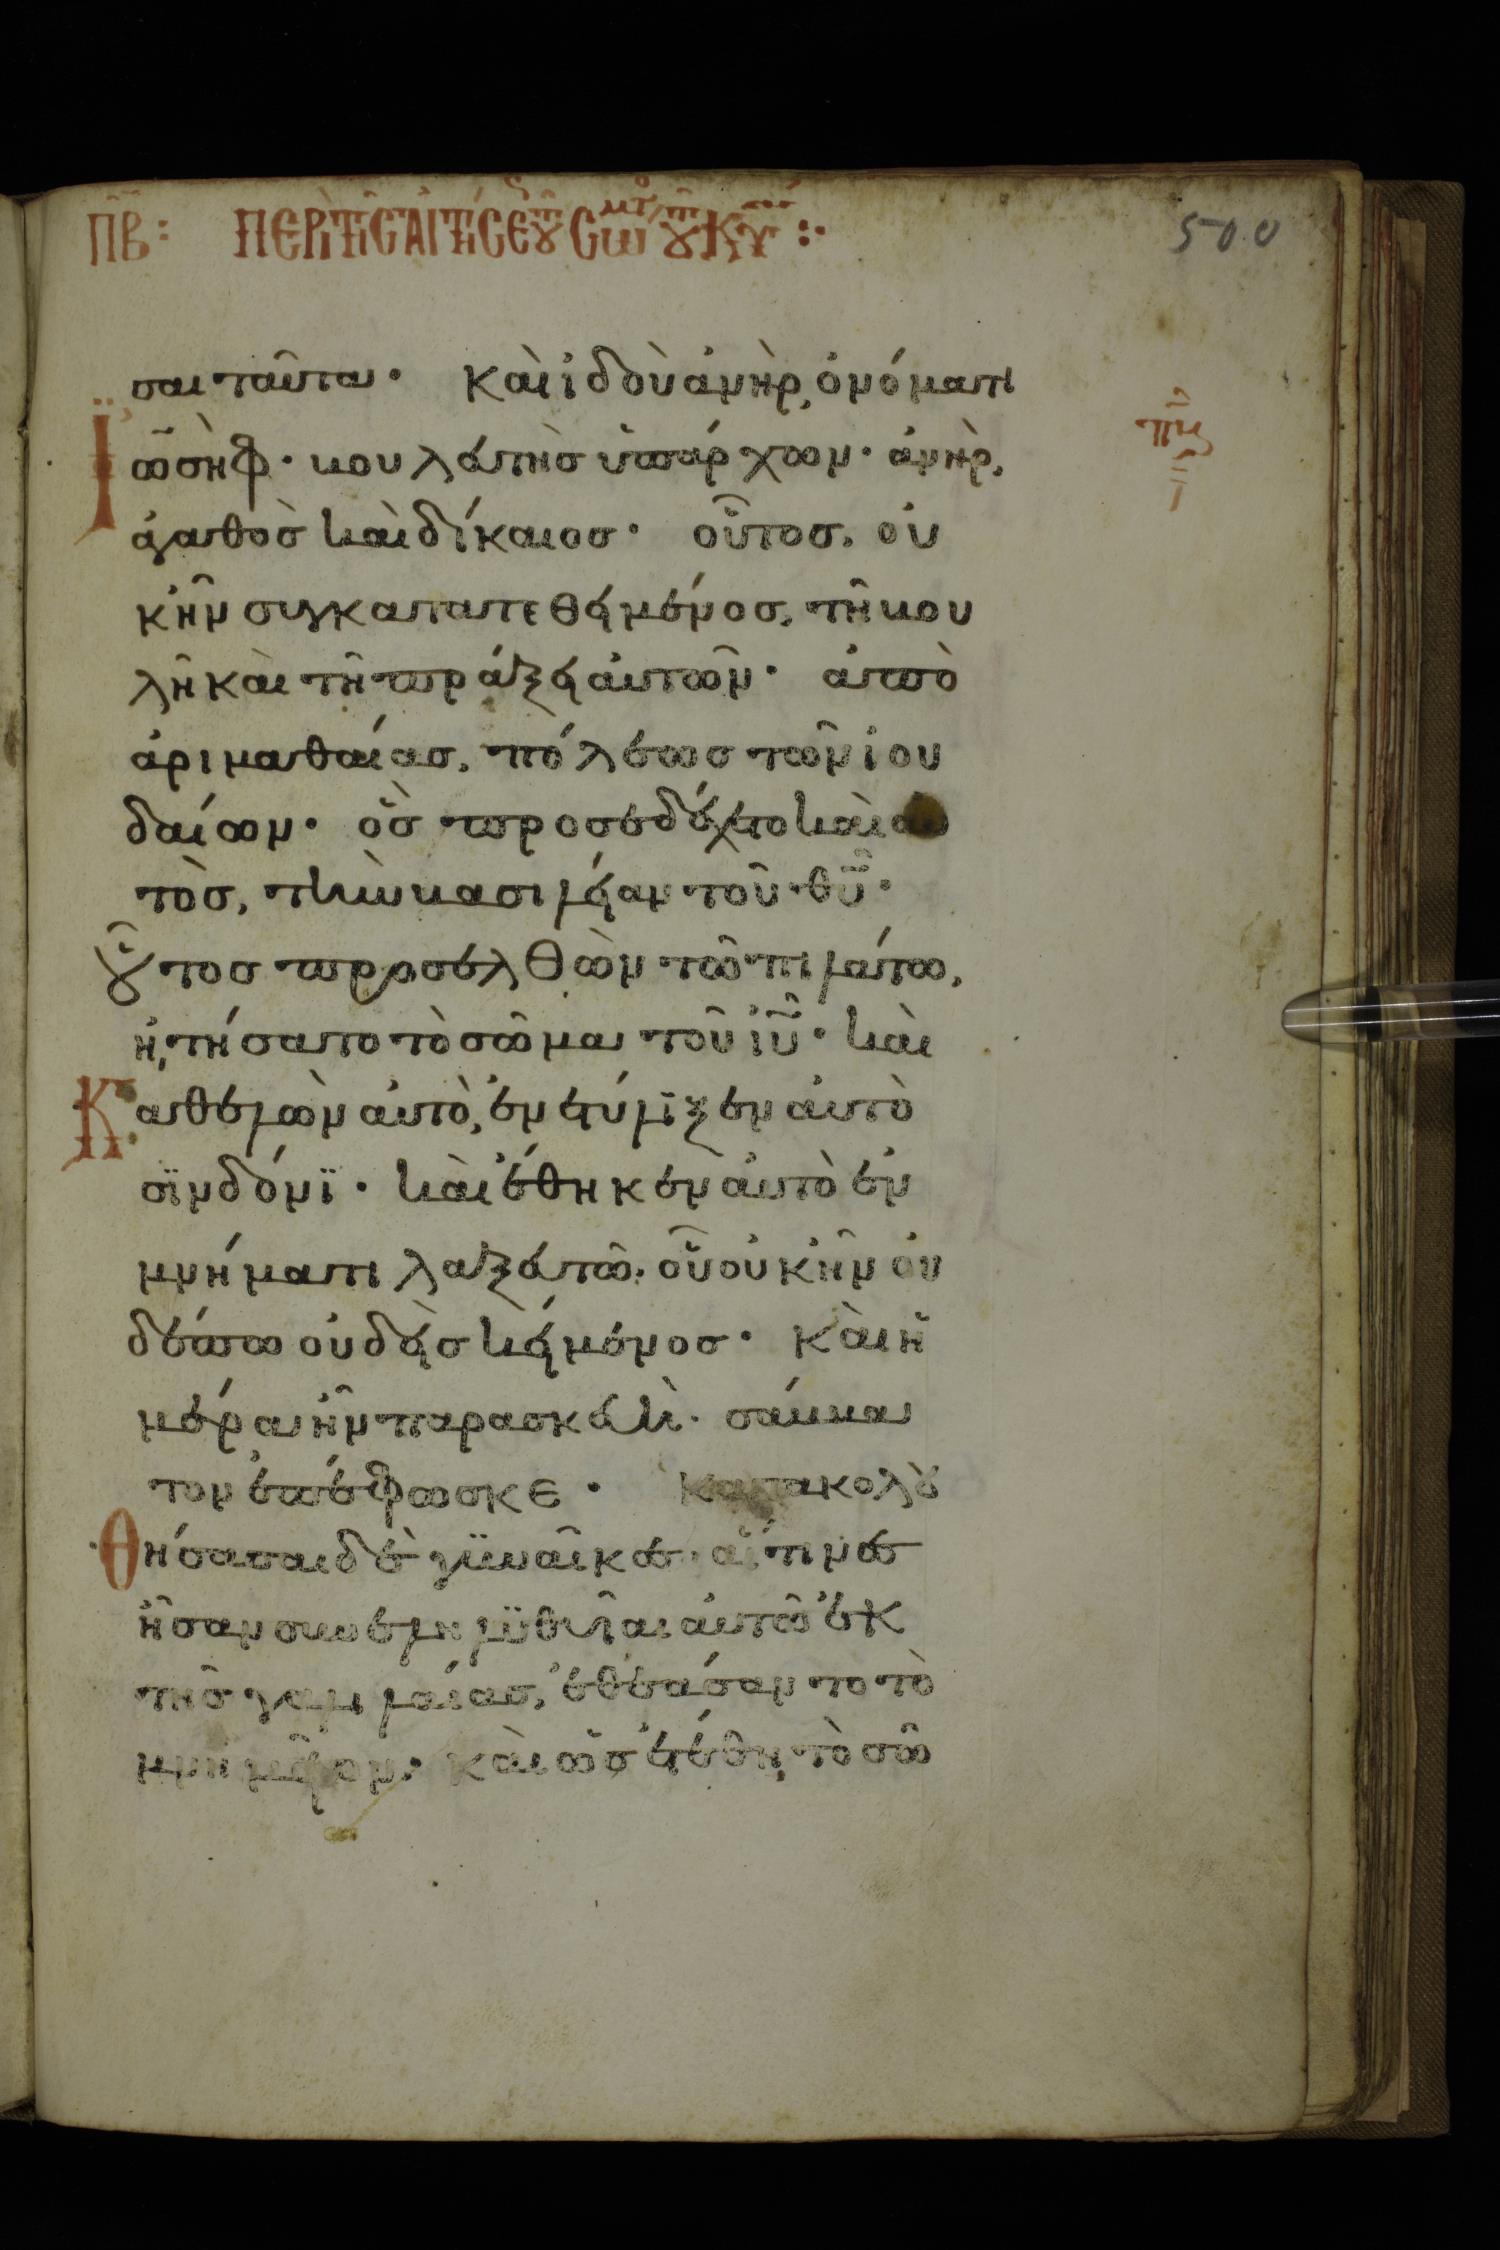 πβ: περὶ τῆς αἰτήσεως τοῦ σώμτ τοῦ κυ :·
500
σαι ταῦτα· καὶ ἰδοὺ ἀνὴρ, ὀνόματι
Ἰωσὴφ· βουλευτὴς ὑπάρχων· ἀνὴρ,
ἀγαθὸς καὶ δίκαιος· οὗτος, οὐ
κἦν συγκατατεθειμένος, τῆ βου
λῆ καὶ τῆ πράξει αὐτῶν· ἀπὸ
ἀριμαθαίας, πόλεως τῶν ἰου
δαίων· ὃς προσεδέχετο καὶ αὐ
τὸς, τὴν βασιλείαν τοῦ θυ·
οὗτος προσελθὼν τῶ πιλάτω,
ἠτήσατο τὸ σῶμα τοῦ ἰυ· καὶ
Καθελὼν αὐτὸ, ἐνετύλιξεν αὐτὸ
σϊνδόνϊ· καὶ ἔθηκεν αὐτὸ ἐν
μνήματι λαξευτῶ, οὗ οὐκ ἦν οὐ
δέπω οὐδεὶς κείμενος· καὶ ἡ
μέρα ἦν παρασκευὴ· σάββα
τον ἐπέφωσκε· κατακολου
Θήσασαι δὲ γϋναῖκες· αἵτινες
ἦσαν συνεληλϋθυῖαι αὐτῶ ἐκ
τῆς γαλιλαίας, ἐθεάσαντο τὸ
μνημεῖον· καὶ ὡς ἐτέθη, τὸ σῶ